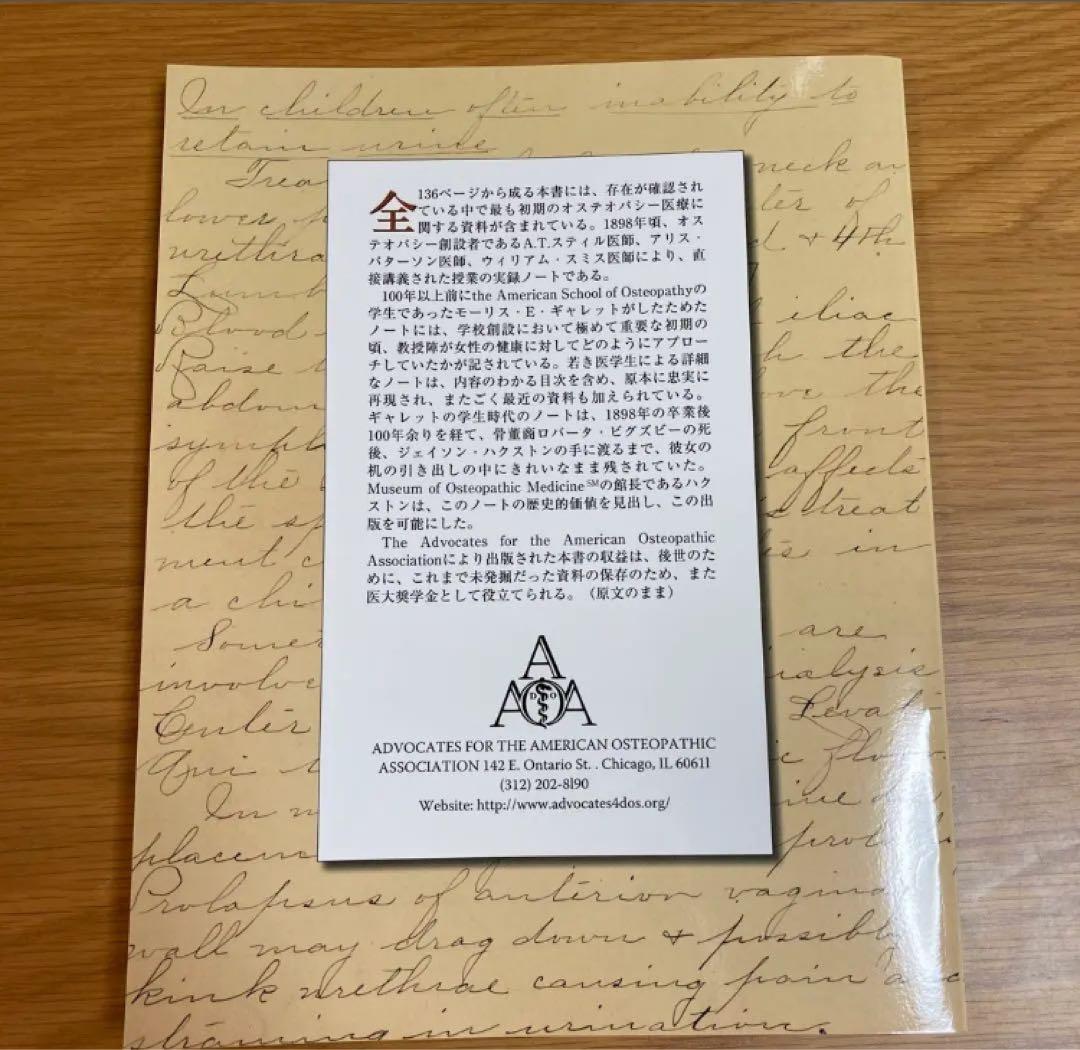 In children often inability to
retain urine
Trea
neck or
lower
ter of
urethra
d + 4th
Lumb
Blood
iliac
Raise
h the
abdom
ove the
symph
front
of the
affects
the sp
treat
ment c
in
a chi
Somet
are
involve
ialysis
Center
Levat
Ani
In
placem
Prolapsus of anterior vagina
wall may drag down + possibly
kink urethrae causing pain
straining in urination.
全136ページから成る本書には、存在が確認され
ている中で最も初期のオステオパシー医療に
関する資料が含まれている。1898年頃、オス
テオパシー創設者であるA.T.スティル医師、アリス・
パターソン医師、ウィリアム・スミス医師により、直
接講義された授業の実録ノートである。
100年以上前にthe American School of Osteopathyの
学生であったモーリス・E・ギャレットがしたためた
ノートには、学校創設において極めて重要な初期の
頃、教授陣が女性の健康に対してどのようにアプロー
チしていたかが記されている。若き医学生による詳細
なノートは、内容のわかる目次を含め、原本に忠実に
再現され、またごく最近の資料も加えられている。
ギャレットの学生時代のノートは、1898年の卒業後
100年余りを経て、骨董商ロバータ・ビグズビーの死
後、ジェイソン・ハクストンの手に渡るまで、彼女の
机の引き出しの中にきれいなまま残されていた。
Museum of Osteopathic Medicine℠の館長であるハク
ストンは、このノートの歴史的価値を見出し、この出
版を可能にした。
The Advocates for the American Osteopathic
Associationにより出版された本書の収益は、後世のた
めに、これまで未発掘だった資料の保存のため、また
医大奨学金として役立てられる。（原文のまま）
A
AOA
D O
ADVOCATES FOR THE AMERICAN OSTEOPATHIC
ASSOCIATION 142 E. Ontario St. . Chicago, IL 60611
(312) 202-8190
Website: http://www.advocates4dos.org/